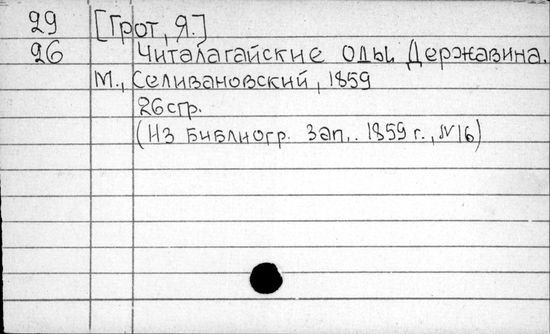 29 [Грот, Я.]
26 Читалагайские оды Державина.
М., Селивановский, 1859
26 стр.
(Из Библиогр. Зап.. 1859 г., №16)